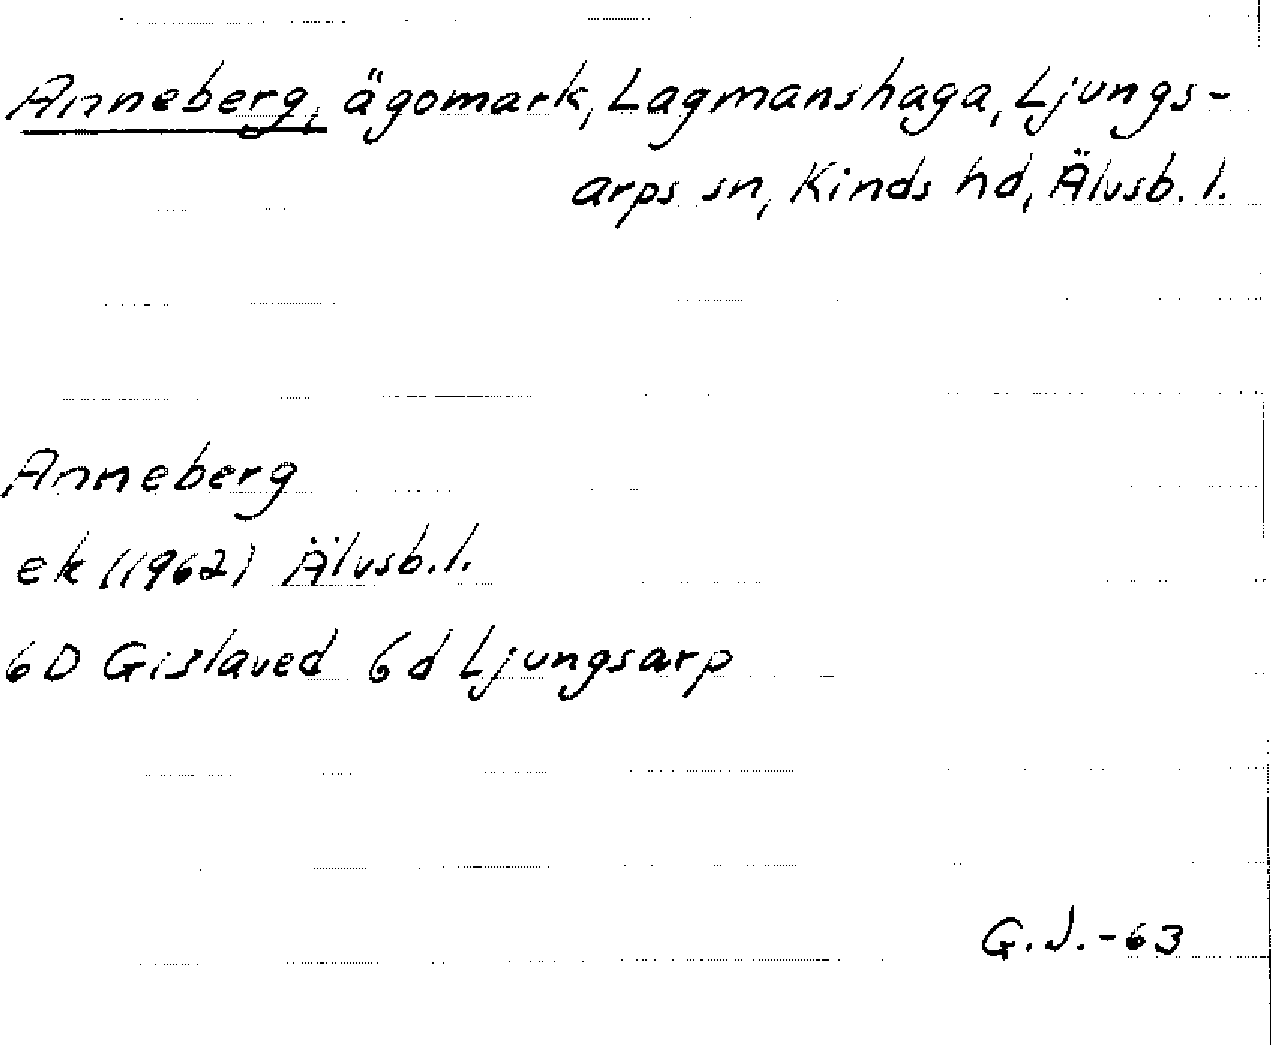 Anneberg, ägomark, Lagmanshaga, Ljungs-
arps sn, Kinds hd, Älvsb. l.
Anneberg
ek (1962) Älvsb. l.
6D Gislaved 6d Ljungsarp
G.J.-63